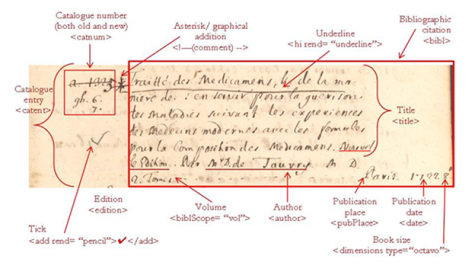 Catalogue number
(both old and new)
<catnum>
Asterisk/ graphical
addition
<!—(comment) -->
Underline
<hi rend= "underline">
Bibliographic
citation
<bibl>
Catalogue
entry
<catent>
gh. 6.
7.
Traitté des Medicamens, & de la ma
niere de s'en servir pour la guerison
des maladies suivant les experiences
des medecins modernes avec les formules
pour la composition des Medicamens. Nouvel
le Edition. Par Mr. De Tauvry M D.
2. Tomes.
Paris.
Title
<title>
Edition
<edition>
Volume
<biblScope= "vol">
Author
<author>
Publication
place
<pubPlace>
Publication
date
<date>
Tick
<add rend= "pencil">✔</add>
Book size
<dimensions type="octavo">